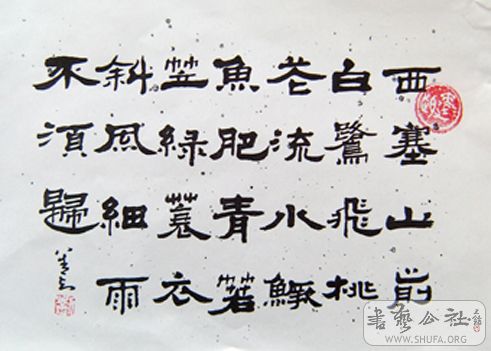 西塞山前
白鷺飛桃
花流水鱖
魚肥青箬
笠緑蓑衣
斜風細雨
不須歸
書藝公社
WWW.SHUFA.ORG